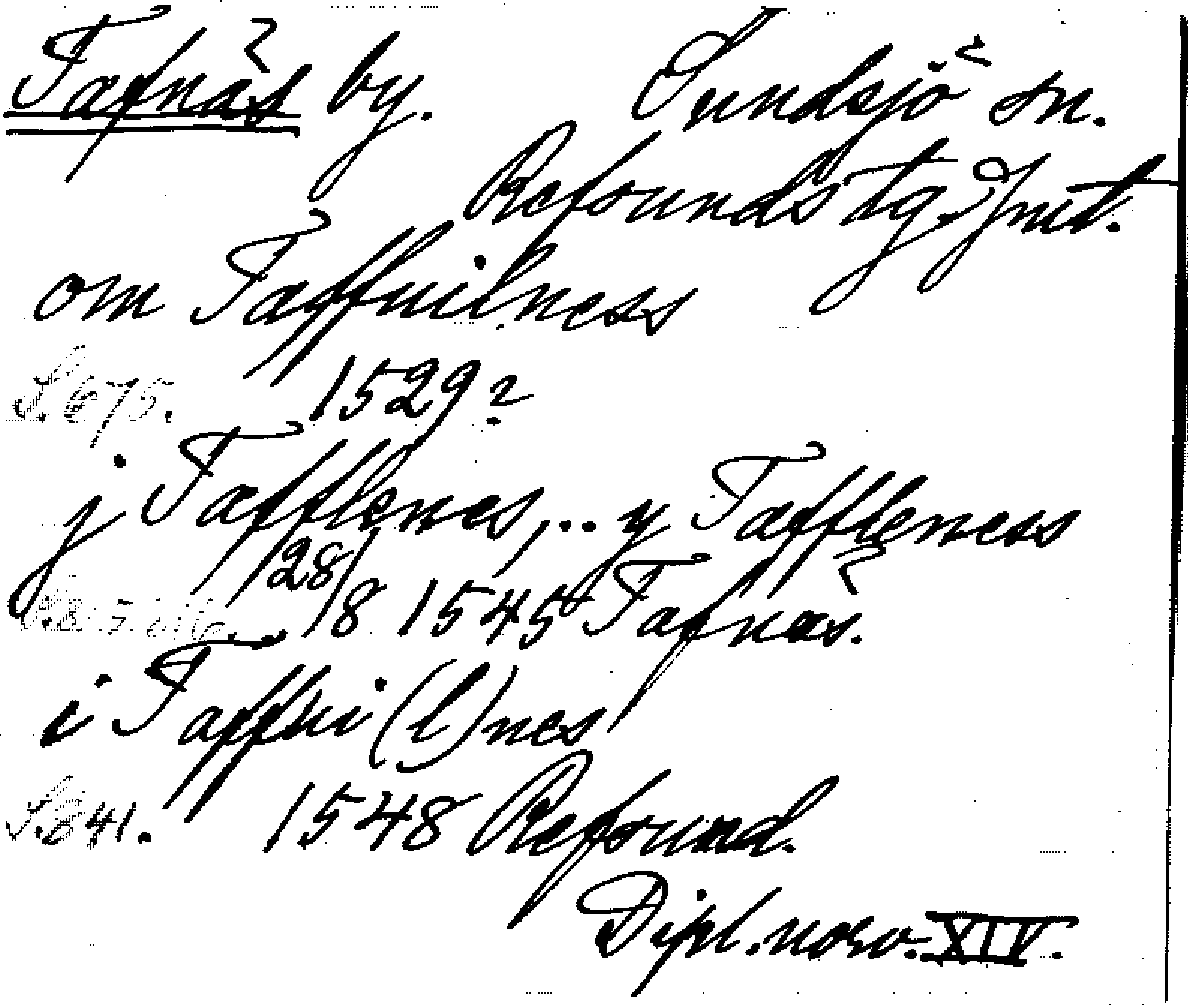 Tafnäs by. Sundsjö sn.
Refsunds tg. Jmt.
om Taffuilness
S. 675. 1529?
j Tafflenes,.. y Taffleness
28/8 1545 Tafnäs.
i Taffui(l)nes
S. 841. 1548 Refsund.
Dipl. norv. XIV.